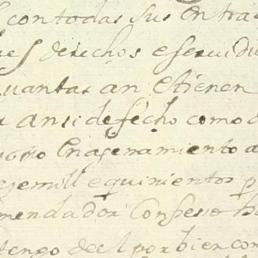 con todas sus entra
es derechos e seruidu
quantas an e tienen
ansi de fecho como d
Enagenamiento a
mill e quinientos p
mendador Confieso
tengo de el por bien con